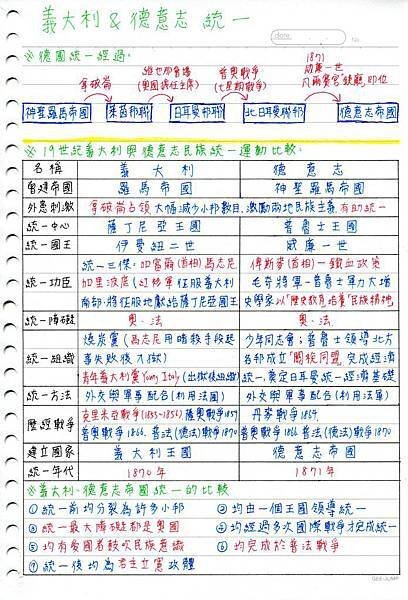 義大利 & 德意志 統一
date
No.
※德國統一經過。
1871
威廉一世
凡爾賽宮鏡廳即位
拿破崙
維也納會議
(奧國擔任主席)
普奧戰爭
(七星期戰爭)
神聖羅馬帝國
萊茵邦聯
日耳曼邦聯
北日耳曼聯邦
德意志帝國
※19世紀義大利與德意志民族統一運動比較。
名稱 義大利 德意志
曾建帝國 羅馬帝國 神聖羅馬帝國
外患刺激 拿破崙占領 大幅減少小邦數目,激勵兩地民族主義,有助統一
統一中心 薩丁尼亞王國 普魯士王國
統一國王 伊曼紐二世 威廉一世
統一功臣 統一三傑:加富爾(首相)馬志尼 俾斯麥(首相)—鐵血政策
加里波底(紅衫軍)征服義大利 毛奇將軍—普魯士軍力大增
南部,將征服地獻給薩丁尼亞王國 史學家以「歷史教育培養」民族精神
統一障礙 奧、法 奧、法
統一組織 燒炭黨(馬志尼用暗殺手段起 少年同志會;普魯士領導北方
事失敗後入獄) 各邦成立「關稅同盟」完成經濟
青年義大利黨Young Italy(出獄後組織) 統一,奠定日耳曼統一經濟基礎
統一方法 外交與軍事配合(利用法國) 外交與軍事配合(利用法國)
歷經戰爭 克里米亞戰爭(1853~1856) 薩奧戰爭1859 丹麥戰爭1864
普奧戰爭1866、普法(德法)戰爭1870 普奧戰爭1866 普法(德法)戰爭1870
建立國家 義大利王國 德意志帝國
統一年代 1870年 1871年
※義大利、德意志帝國統一的比較
①統一前均分裂為許多小邦 ②均由一個王國領導統一
③統一最大障礙都是奧國 ④均經過多次國際戰爭才完成統一
⑤均有愛國者鼓吹民族意識 ⑥均完成於普法戰爭
⑦統一後均為君主立憲政體